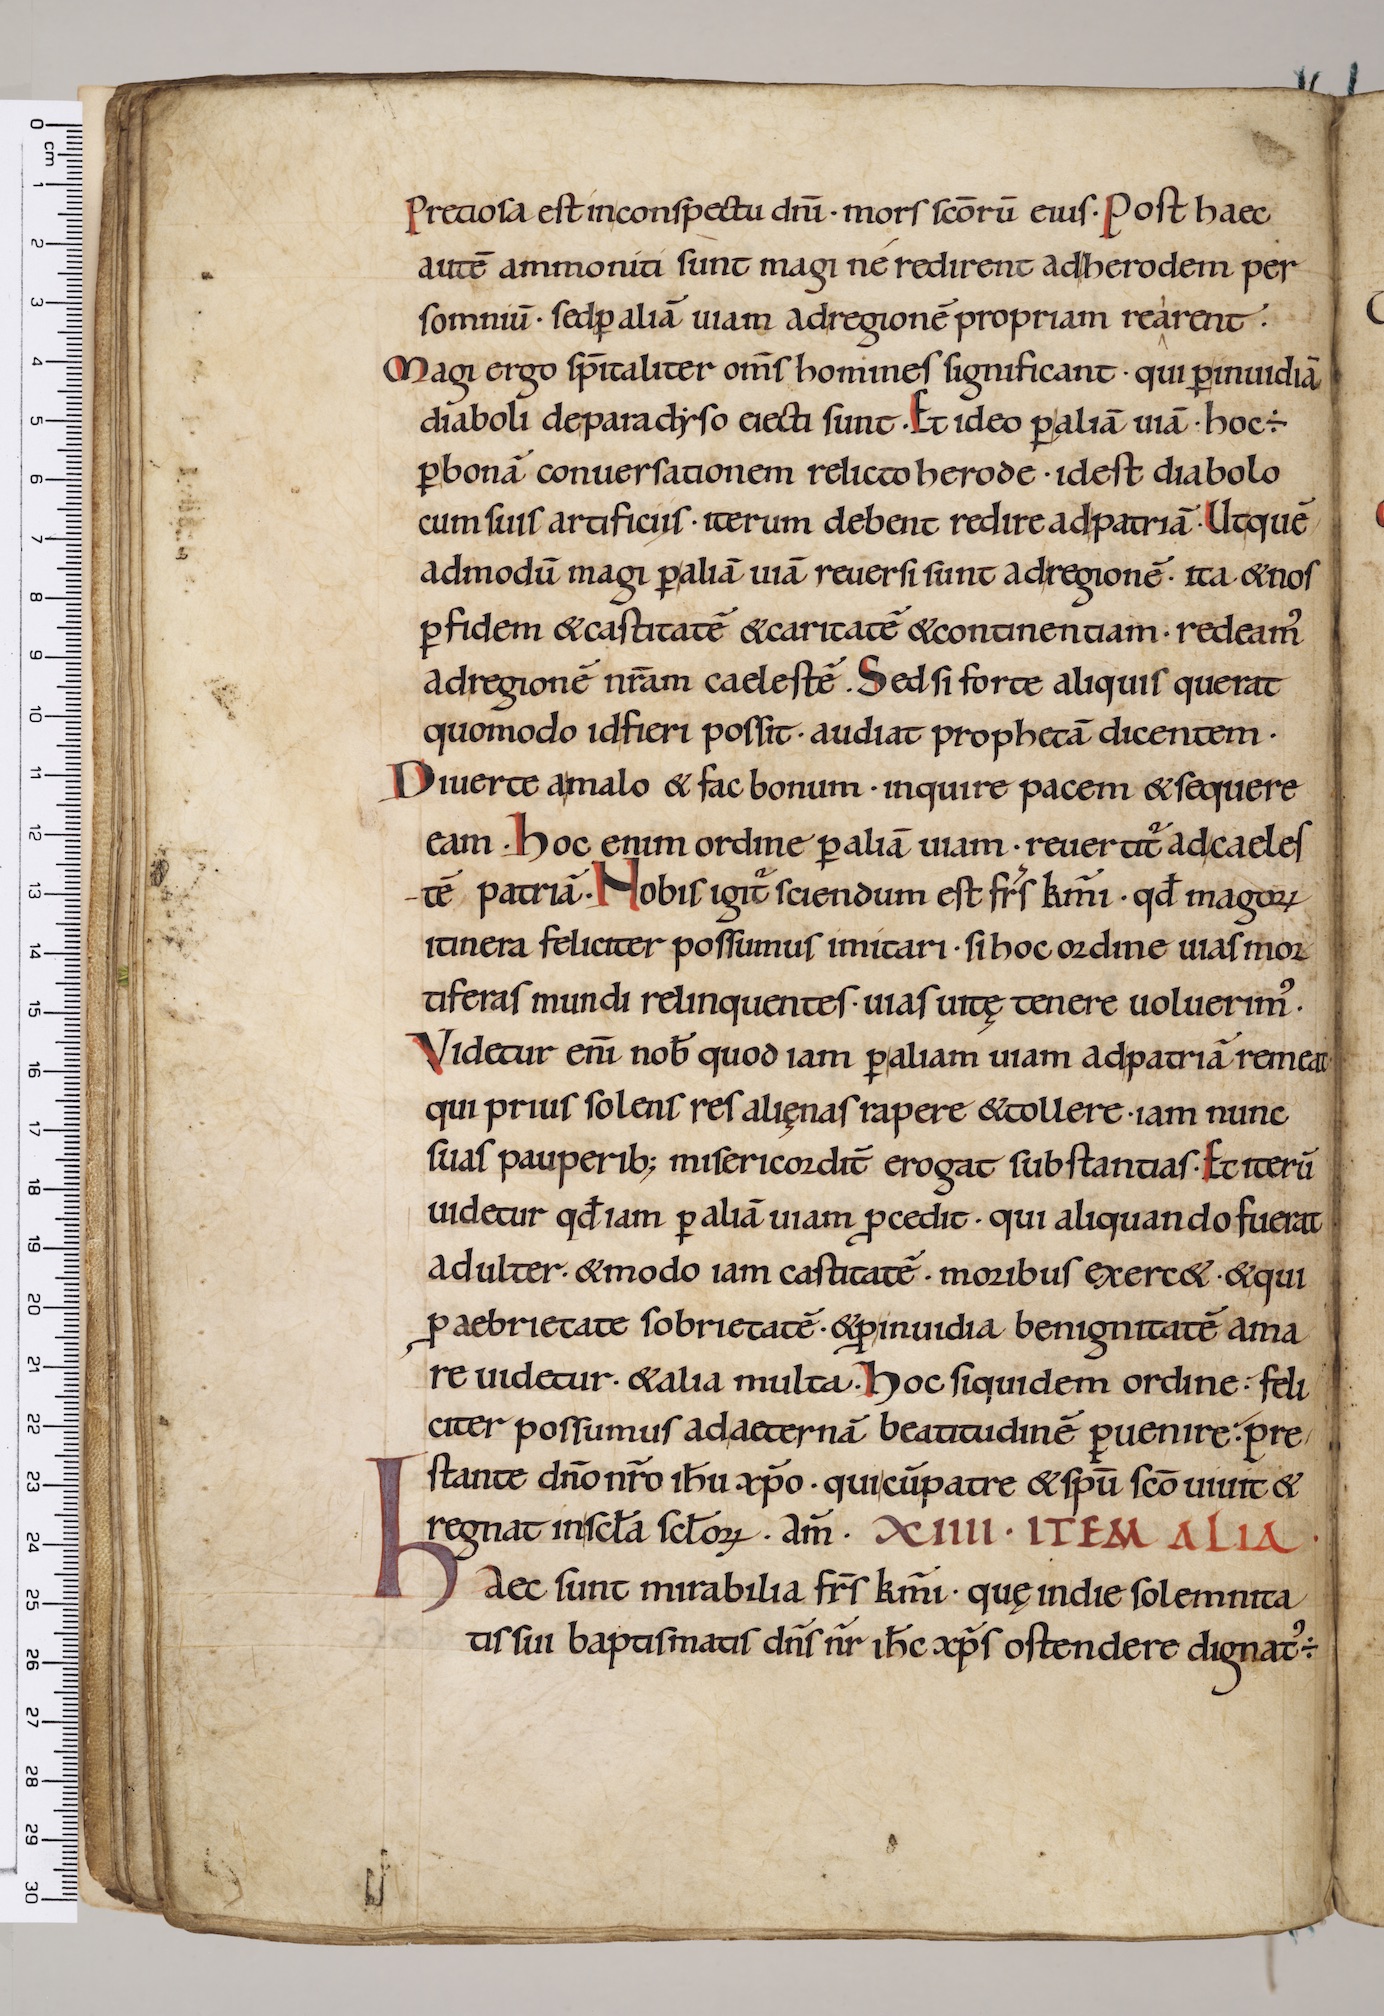 Preciosa est inconspectu dnī · mors scōrū eius · Post haec
autē ammoniti sunt magi ne redirent adherodem per
somniū · sed ꝑ aliā uiam adregionē propriam rearent ·
Magi ergo spītaliter om̄s homines significant · qui ꝑinuidiā
diaboli deparadyso eiecti sunt · Et ideo ꝑ aliā uiā · hoc ÷
ꝑbonā conuersationem relicto herode · idest diabolo
cum suis artificiis · iterum debent redire adpatriā · Utquē
admodū magi ꝑ aliā uiā reuersi sunt adregionē · ita & nos
ꝑ fidem & castitatē & caritatē & continentiam · redeamꝰ
adregionē nr̄am caelestē . Sed si forte aliquis querat
quomodo idfieri possit · audiat prophetā dicentem ·
Diuerte amalo & fac bonum · inquire pacem & sequere
eam · Hoc enim ordine ꝑ aliā uiam · reuertit᷑ adcaeles
tē patriā · Nobis igit᷑ sciendum est fr̄s km̄i · qđ magoꝝ
itinera feliciter possumus imitari · si hoc ordine uias mor
tiferas mundi relinquentes · uias uitę tenere uoluerimꝰ ·
Videtur enī nob̄ quod iam ꝑ aliam uiam adpatriā remeat
qui prius solens res alięnas rapere & tollere · iam nunc
suas pauperib; misericordit̄ erogat substantias · Et iterū
uidetur qđ iam ꝑ aliā uiam ꝓcedit · qui aliquando fuerat
adulter · & modo iam castitatē · moribus exerc& · & qui
ꝓ aebrietate sobrietatē · & ꝓ inuidia benignitatē ama
re uidetur · & alia multa · Hoc siquidem ordine : feli
citer possumus adaeternā beatitudinē ꝑuenire : pre
stante dn̄o nr̄o ih̄u xp̄o · qui cū patre & spū scō uiuit &
regnat inscła scłoꝝ · am̄ · XIIII · ITEM ALIA ·
Haec sunt mirabilia fr̄s km̄i · quę indie solemnita
tis sui baptismatis dn̄s nr̄ ih̄c xp̄s ostendere dignatꝰ ÷